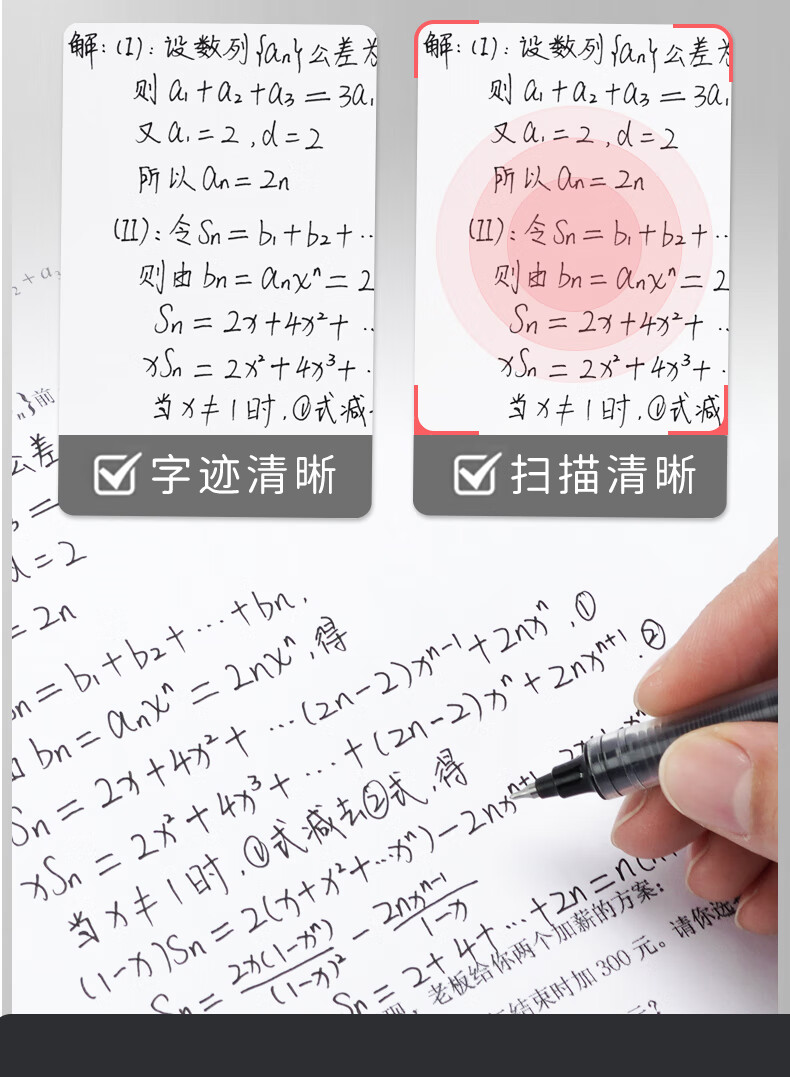 解:(I):设数列{an}公差为
则a₁+a₂+a₃=3a₁
又a₁=2,d=2
所以an=2n
(II):令Sn=b₁+b₂+…
则由bn=anxⁿ=2
Sn=2x+4x²+…
xSn=2x²+4x³+…
当x≠1时,①式减
字迹清晰
解:(I):设数列{an}公差为
则a₁+a₂+a₃=3a₁
又a₁=2,d=2
所以an=2n
(II):令Sn=b₁+b₂+…
则由bn=anxⁿ=2
Sn=2x+4x²+…
xSn=2x²+4x³+…
当x≠1时,①式减
扫描清晰
₂+a₃
n}前
公差
₃=
d=2
=2n
Sn=b₁+b₂+…+bn,
由bn=anxⁿ=2nxⁿ,得
Sn=2x+4x²+…(2n-2)xⁿ⁻¹+2nxⁿ,①
xSn=2x²+4x³+…+(2n-2)xⁿ+2nxⁿ⁺¹.②
当x≠1时,①式减去②式,得
(1-x)Sn=2(x+x²+…xⁿ)-2nxⁿ⁺¹
Sn=2x(1-xⁿ)/(1-x)²-2nxⁿ⁻¹/1-x
Sn=2+4+…+2n=n(n
老板给你两个加薪的方案:
结束时加300元。请你选
元?